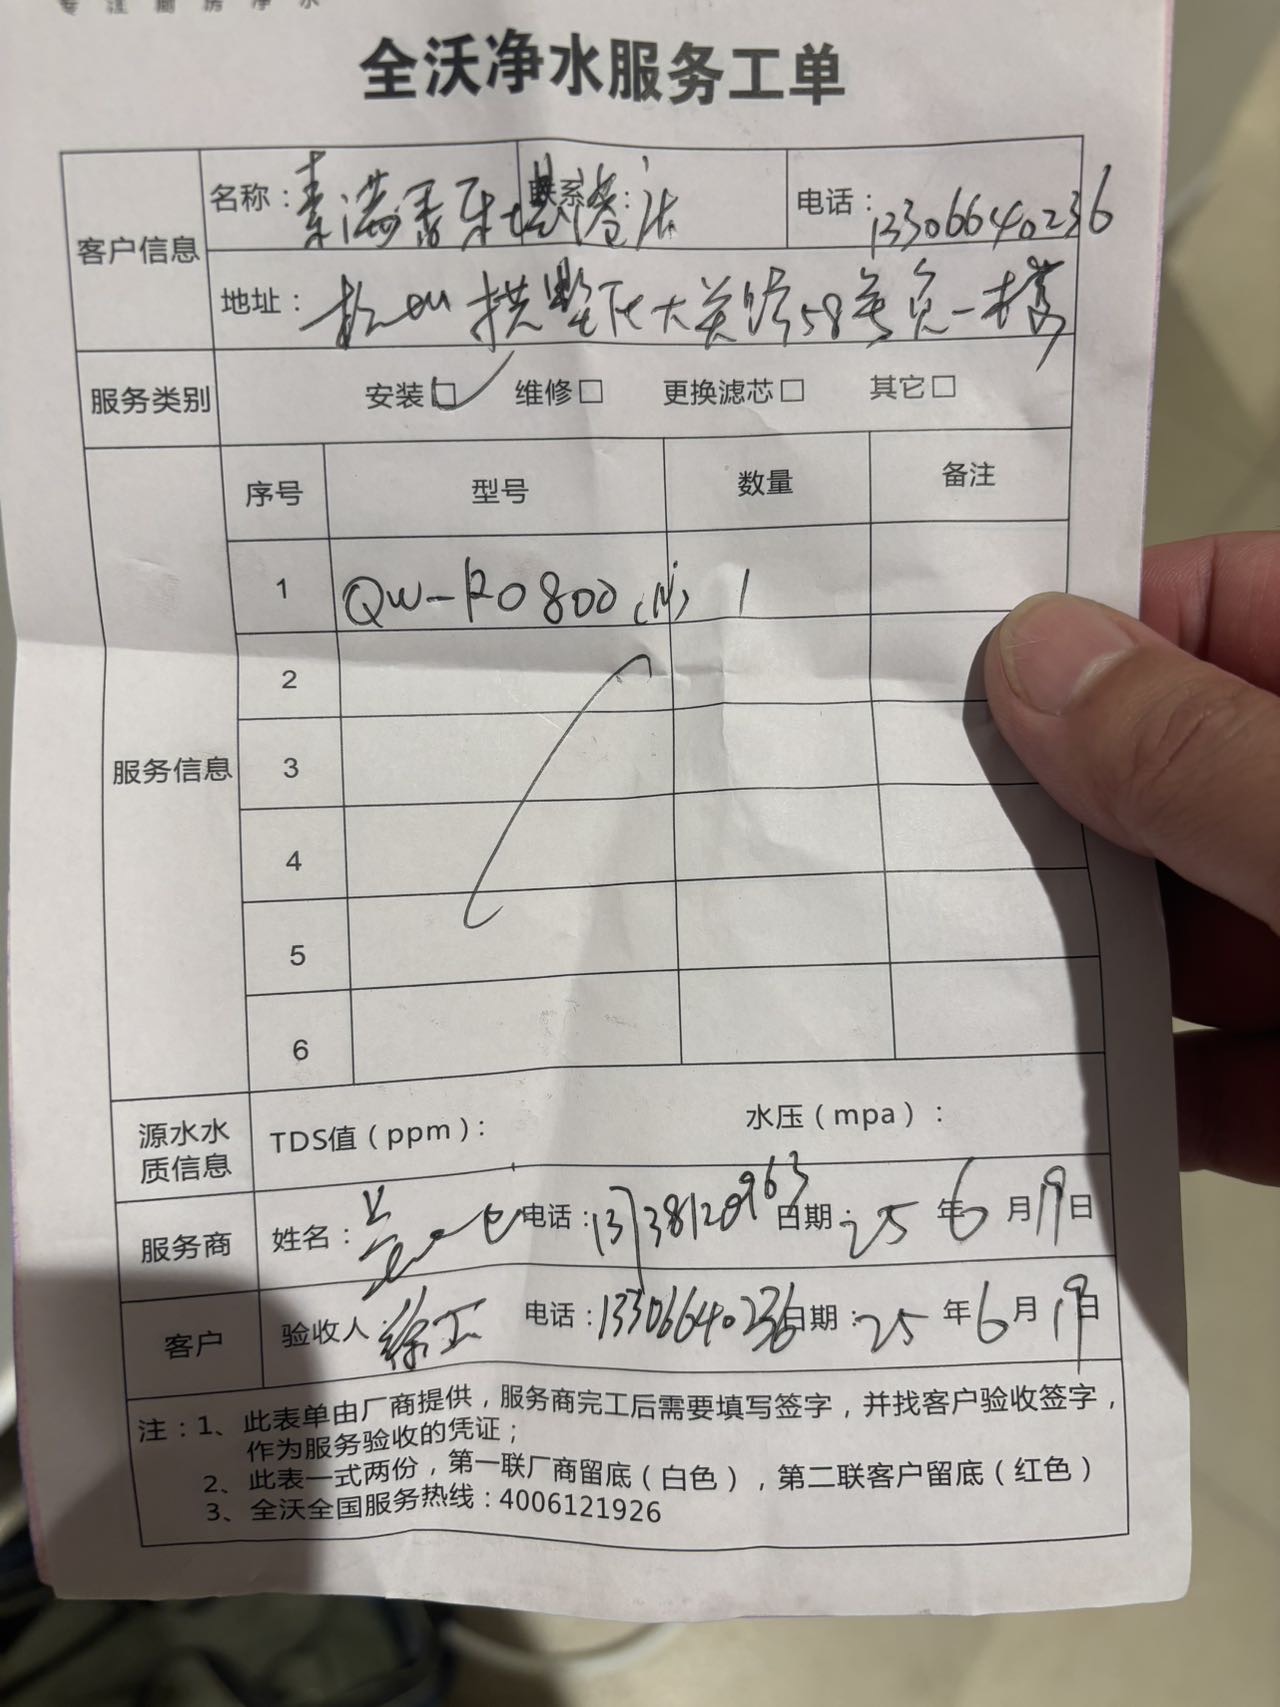 专注厨房净水
全沃净水服务工单
客户信息
名称：素满香 联系 电话：13306640236
地址：杭州拱墅区大关路58号负一楼
服务类别 安装☑ 维修□ 更换滤芯□ 其它□
服务信息
序号 型号 数量 备注
1 QW-RO800 1
2
3
4
5
6
源水水质信息 TDS值（ppm）： 水压（mpa）：
服务商 姓名： 电话：13738120963 日期：25年6月19日
客户 验收人：徐工 电话：13306640236 日期：25年6月19日
注：1、此表单由厂商提供，服务商完工后需要填写签字，并找客户验收签字，
作为服务验收的凭证；
2、此表一式两份，第一联厂商留底（白色），第二联客户留底（红色）
3、全沃全国服务热线：4006121926